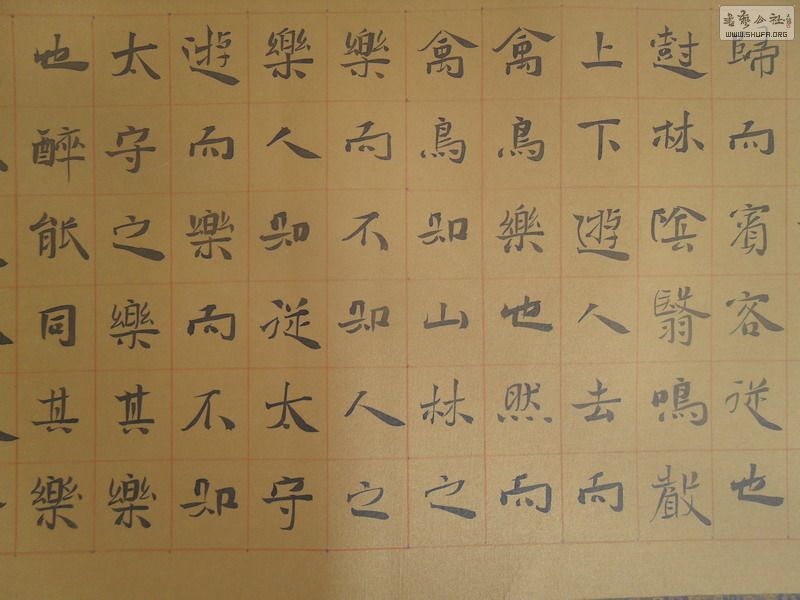 歸而賓客從也
樹林陰翳鳴聲
上下遊人去而
禽鳥樂也然而
禽鳥知山林之
樂而不知人之
樂人知從太守
遊而樂而不知
太守之樂其樂
也醉能同其樂
書藝公社
WWW.SHUFA.ORG